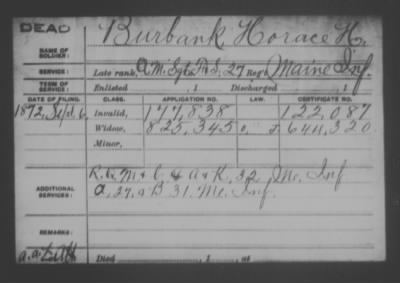 DEAD
NAME OF SOLDIER: Burbank, Horace H.
SERVICE: Late rank, Q.M. Sgt. F&S, 27 Reg't Maine Inf.
TERM OF SERVICE: Enlisted , 1 Discharged , 1
DATE OF FILING. CLASS. APPLICATION NO. LAW. CERTIFICATE NO.
1872, Sept. 6 Invalid, 177,838 122,087
Widow, 825,345
Minor,
ADDITIONAL SERVICES: R.Q.M. & C & A & K, 32 Me. Inf
A, 27, & B 31, Me. Inf.
REMARKS:
Died , 1 , at